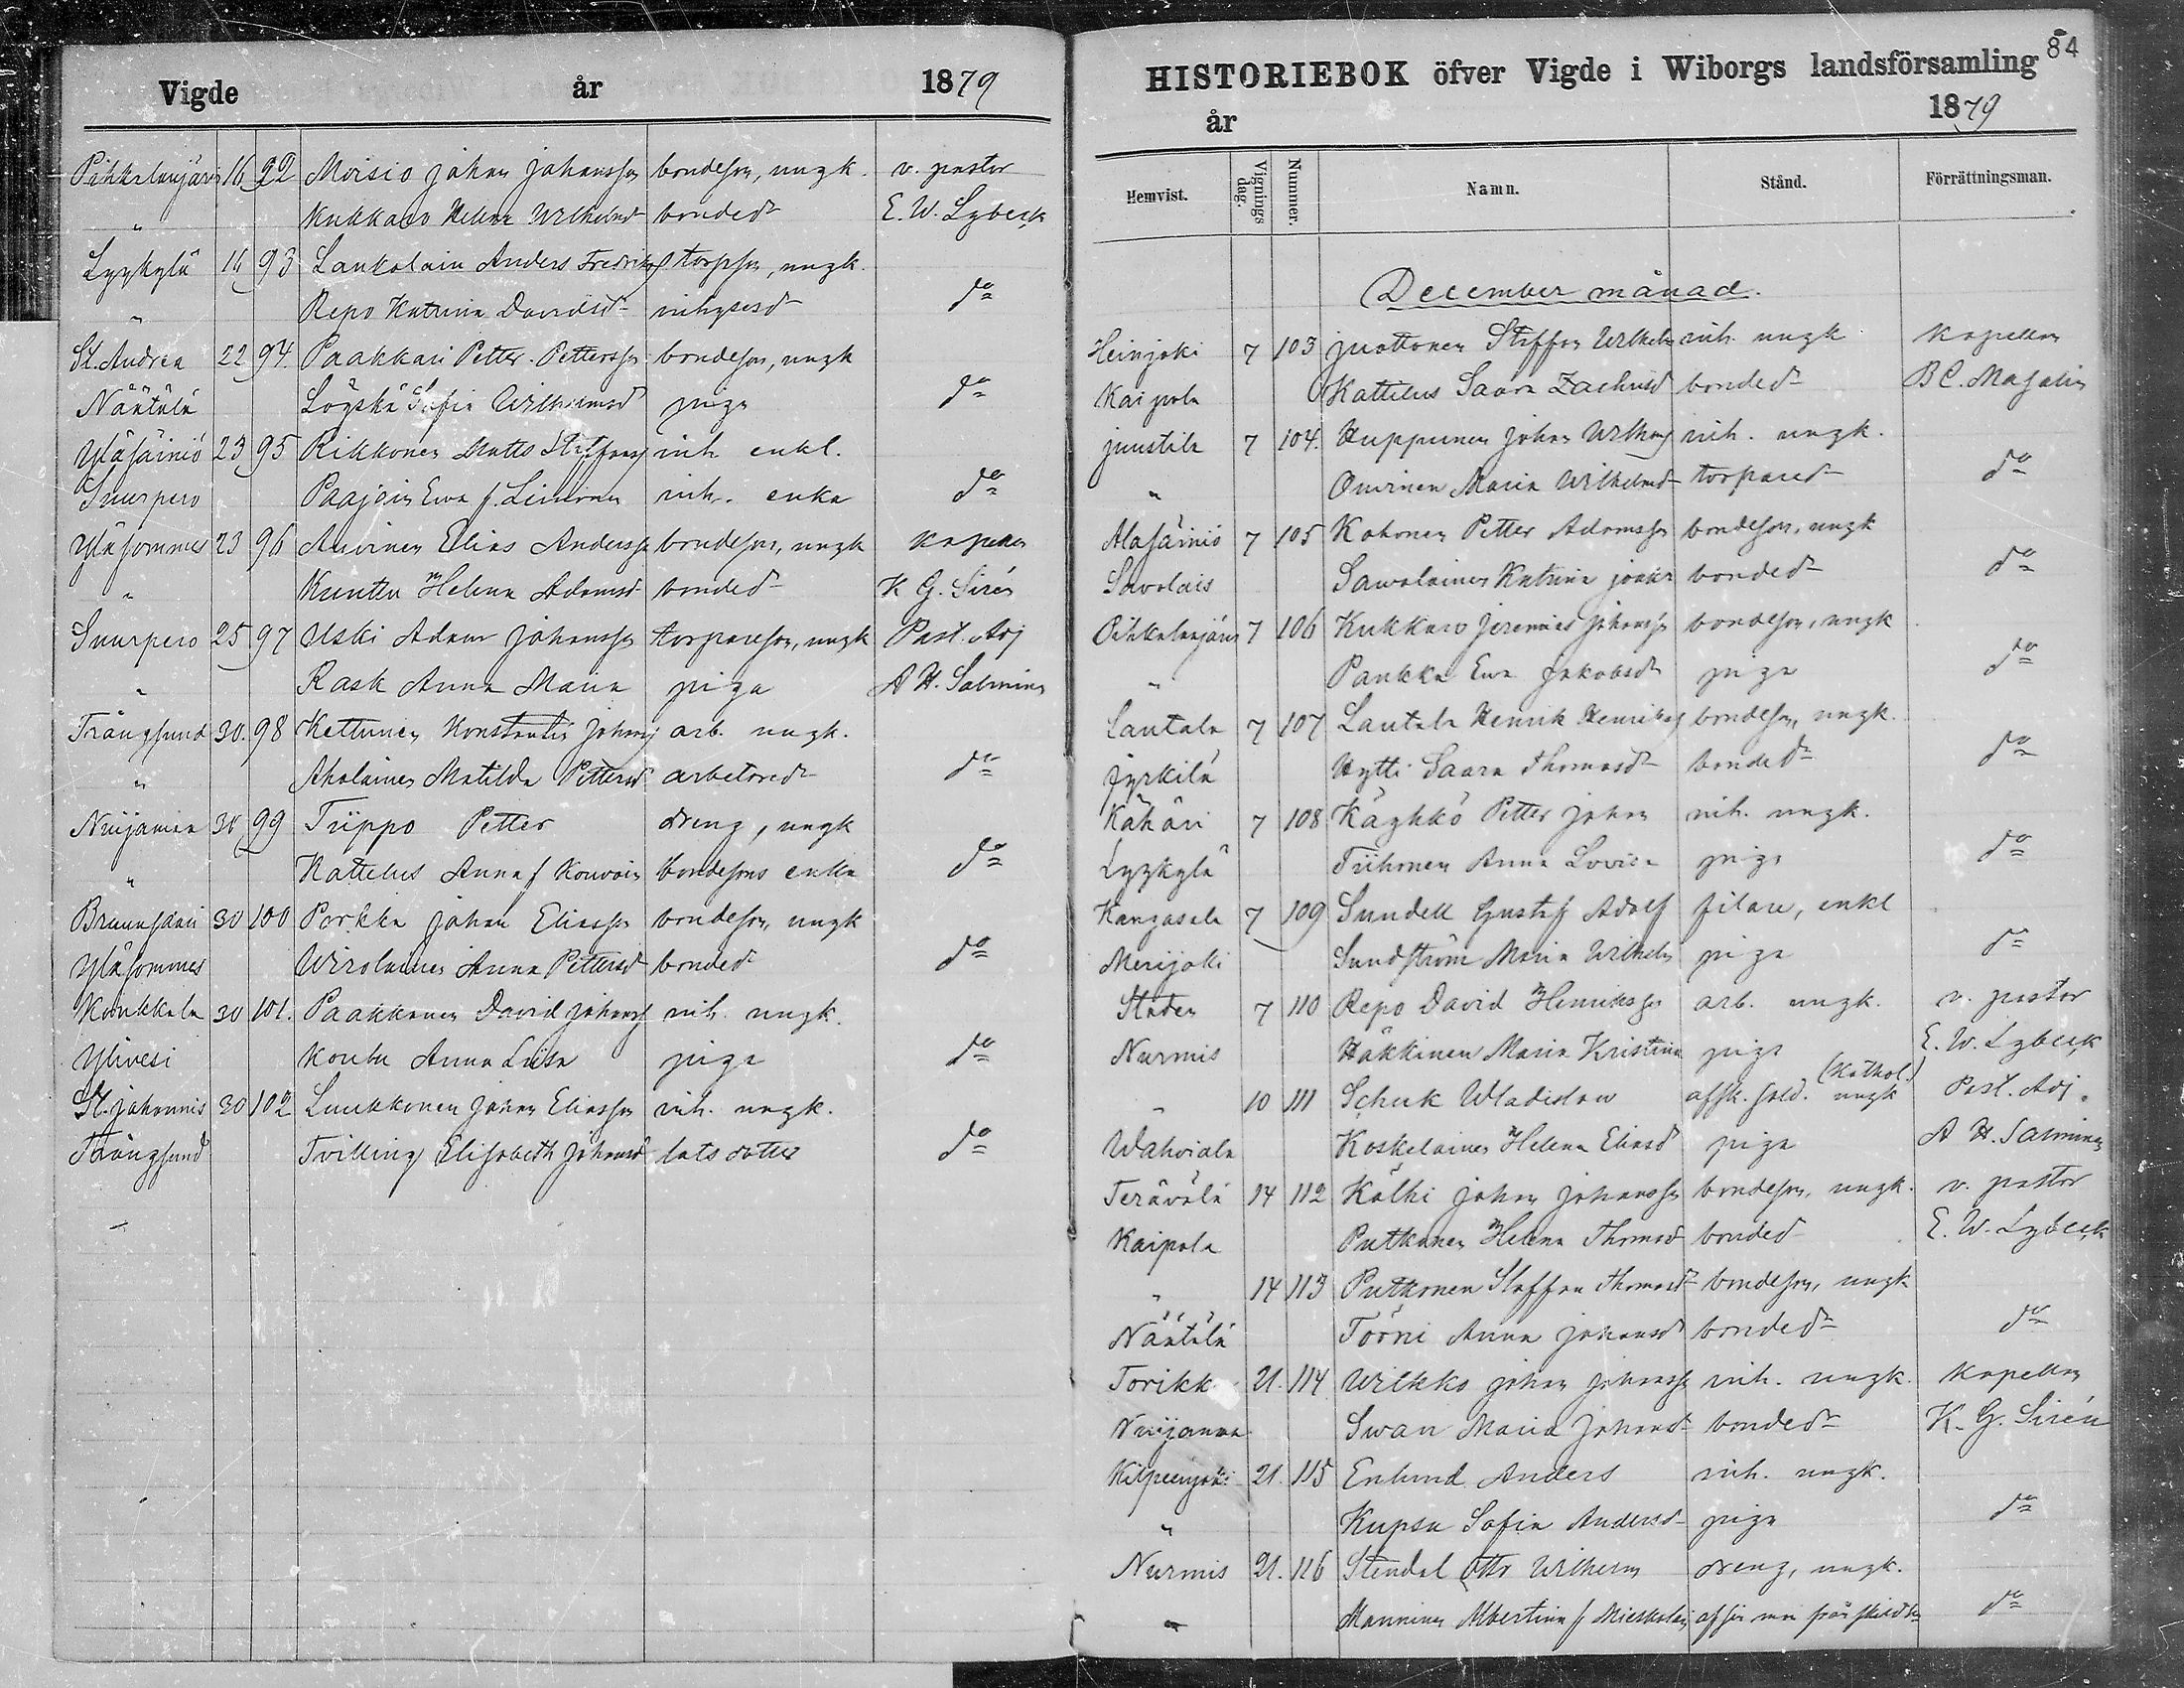 Vigde år 1879
Pihkalanjärvi 16 92 Moisio Johan Johansson bondeson, ungk. v. pastor
" Kukkaro Helena Wilhelmsd bonded E. W. Lybeck
Lyykylä 16 93 Laukalain Anders Fredriks torpson, ungk.
" Repo Katrina Davidsd inhysesd do
St. Andrea 22 94. Paakkari Petter Pettersson bondeson, ungk
Näätälä Sofia Wilhelmsd piga do
Yläsäiniö 23 95 Rikkonen Matts Staffans inh enkl.
Suurpero Paajain Ewa f. inh. enka do
Yläsommes 23 96 Auvinen Elias Andersson bondeson, ungk kapellan
" Kunttu Helena Adamsd bonded K G. Sirén
Suurpero 25 97 Uski Adam Johansson torpareson, ungk Past. Adj
" Rask Anna Maria piga A H. Salminen
Trångsund 30. 98 Kettunen Konstantin Johans arb. ungk.
" Aholainen Matilda Pettersd arbetared do
Nuijamaa 30 99 Tiippo Petter dreng, ungk
" Kattelus Anna f Kouvoin bondesons enka do
Brunnsdari 30 100 Porkka Johan Eliasson bondeson, ungk
Yläsommes Wirolainen Anna Pettersd bonded do
Konkkala 30 101. Paakkanen David Johans inh. ungk.
Ylivesi Anna Luisa piga do
St. Johannis 30 102 Luukkonen Johan Eliasson inh. ungk.
Trångsund Tvilling Elisabeth Johansd lotsdotter do
84
HISTORIEBOK öfver Vigde i Wiborgs landsförsamling
år 1879
Hemvist. Vignings dag. Nummer. Namn. Stånd. Förrättningsman.
December månad.
Heinjoki 7 103 Juottonen Staffan Wilhelm inh. ungk kapellan
Kaipola Kattelus Saara Zachrisd bonded B C.
Juustila 7 104. Huppunen Johan Wilhems inh. ungk.
" Onvinen Maria Wilhelmsd torpared do
Alasäiniö 7 105 Kohonen Petter Adamsson bondeson, ungk
Savolais Sawolainen Katrina bonded do
Pihkalanjärvi 7 106 Kukkaro Jeremias Johansson bondeson, ungk
" Pankka Ewa Jakobsd piga do
Lautala 7 107 Lautala Henrik Henriks bondeson, ungk.
Jyrkilä Hytti Saara Thomasd bonded do
Kähäri 7 108 Käghkö Petter Johan inh. ungk.
Lyykylä Tiihonen Anna Lovisa piga do
Kangasala 7 109 Sundell Gustaf Adolf filare, enkl
Merijoki Sundström Maria Wilhelm piga do
Staden 7 110 Repo David Henriksson arb. ungk. v. pastor
Nurmis Häkkinen Maria Kristina piga E. W. Lybeck
" 10 111 Schuk Wladislaw afsk. sold. ungk (kathol.) Past. Adj.
Wahviala Koskelainen Helena Eliasd piga A H. Salminen
Terävälä 14 112 Kälki Johan Johansson bondeson, ungk. v. pastor
Kaipola Putkonen Helena Thomasd bonded E. W. Lybeck
" 14 113 Putkonen Staffan Thomasd bondeson, ungk
Näätälä Törni Anna Johansd bonded do
Torikk 21. 114 Wilkko Johan Johansson inh. ungk. kapellan
Nuijamaa Swan Maria Johansd bonded K. G. Sirén
Kilpeenjoki 21. 115 Enlund Anders inh. ungk.
" Kupsu Sofia Andersd piga do
Nurmis 21. 116 Stendal Otto Wilhelm dreng, ungk.
" Manninen Albertina f do